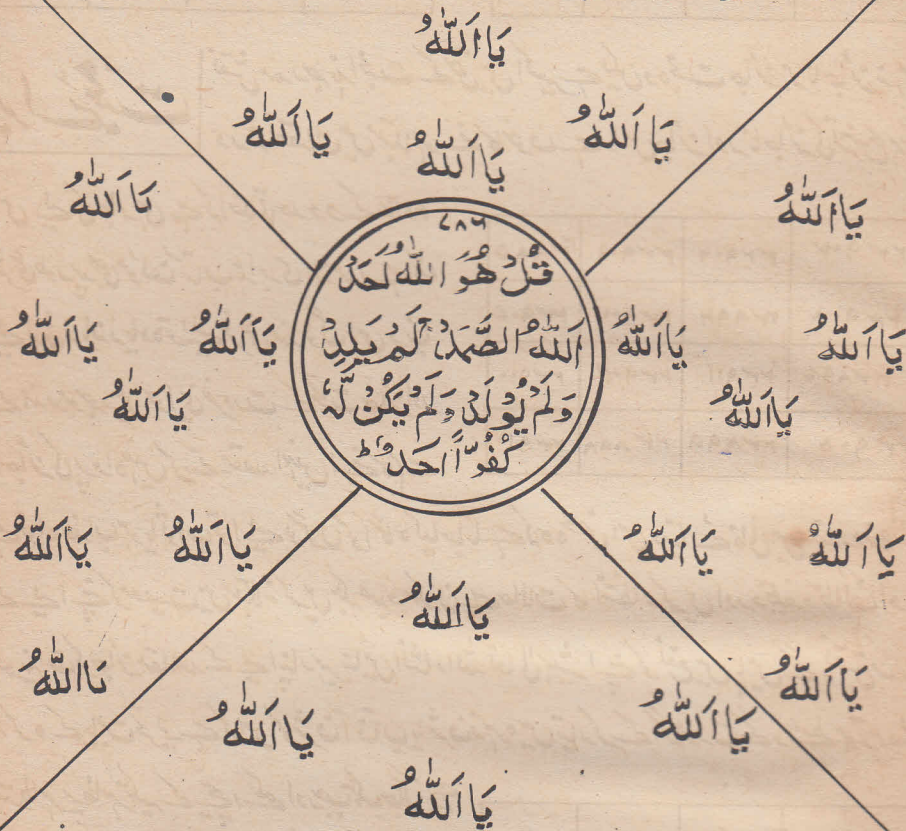 يَا اَللّٰهُ
يَا اَللّٰهُ يَا اَللّٰهُ
يَا اَللّٰهُ
يَا اَللّٰهُ يَا اَللّٰهُ
٧٨٦
قُلْ هُوَ اللّٰهُ اَحَدٌ
اَللّٰهُ الصَّمَدُ لَمْ يَلِدْ
وَلَمْ يُولَدْ وَلَمْ يَكُنْ لَّهٗ
كُفُوًّا اَحَدٌ ط
يَا اَللّٰهُ يَا اَللّٰهُ يَا اَللّٰهُ يَا اَللّٰهُ
يَا اَللّٰهُ يَا اَللّٰهُ
يَا اَللّٰهُ يَا اَللّٰهُ يَا اَللّٰهُ يَا اَللّٰهُ
يَا اَللّٰهُ
يَا اَللّٰهُ يَا اللّٰهُ
يَا اَللّٰهُ يَا اَللّٰهُ
يَا اَللّٰهُ